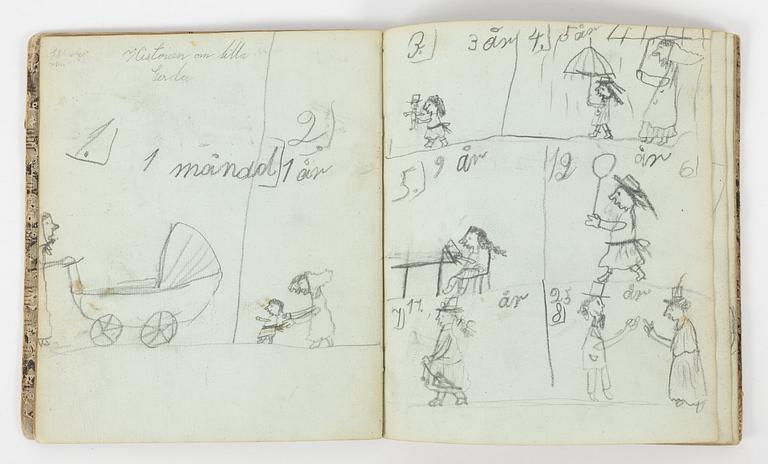 Historien om lilla
Gerda
1.
1 månad
2
1 år
3.
3 år
4.
5 år
5.
9 år
12 år
6
7
17.
år
25 år
8